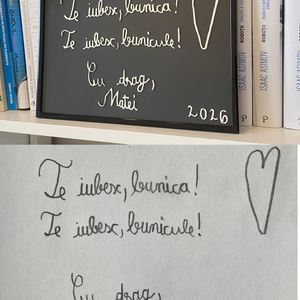 Te iubesx, bunica!
Te iubesx, bunicule!
Cu drag,
Matei
2026
ISAAC ASIMOV
ISAAC ASIMOV
ISAAC ASIMOV
Te iubesx, bunica!
Te iubesx, bunicule!
Cu drag,